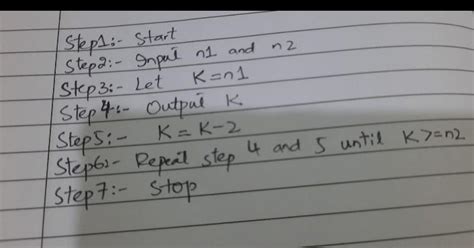 Step1:- Start
Step2:- Input n1 and n2
Step3:- Let K=n1
Step4:- Output K
Step5:- K = K-2
Step6:- Repeat step 4 and 5 until K>=n2
Step7:- Stop